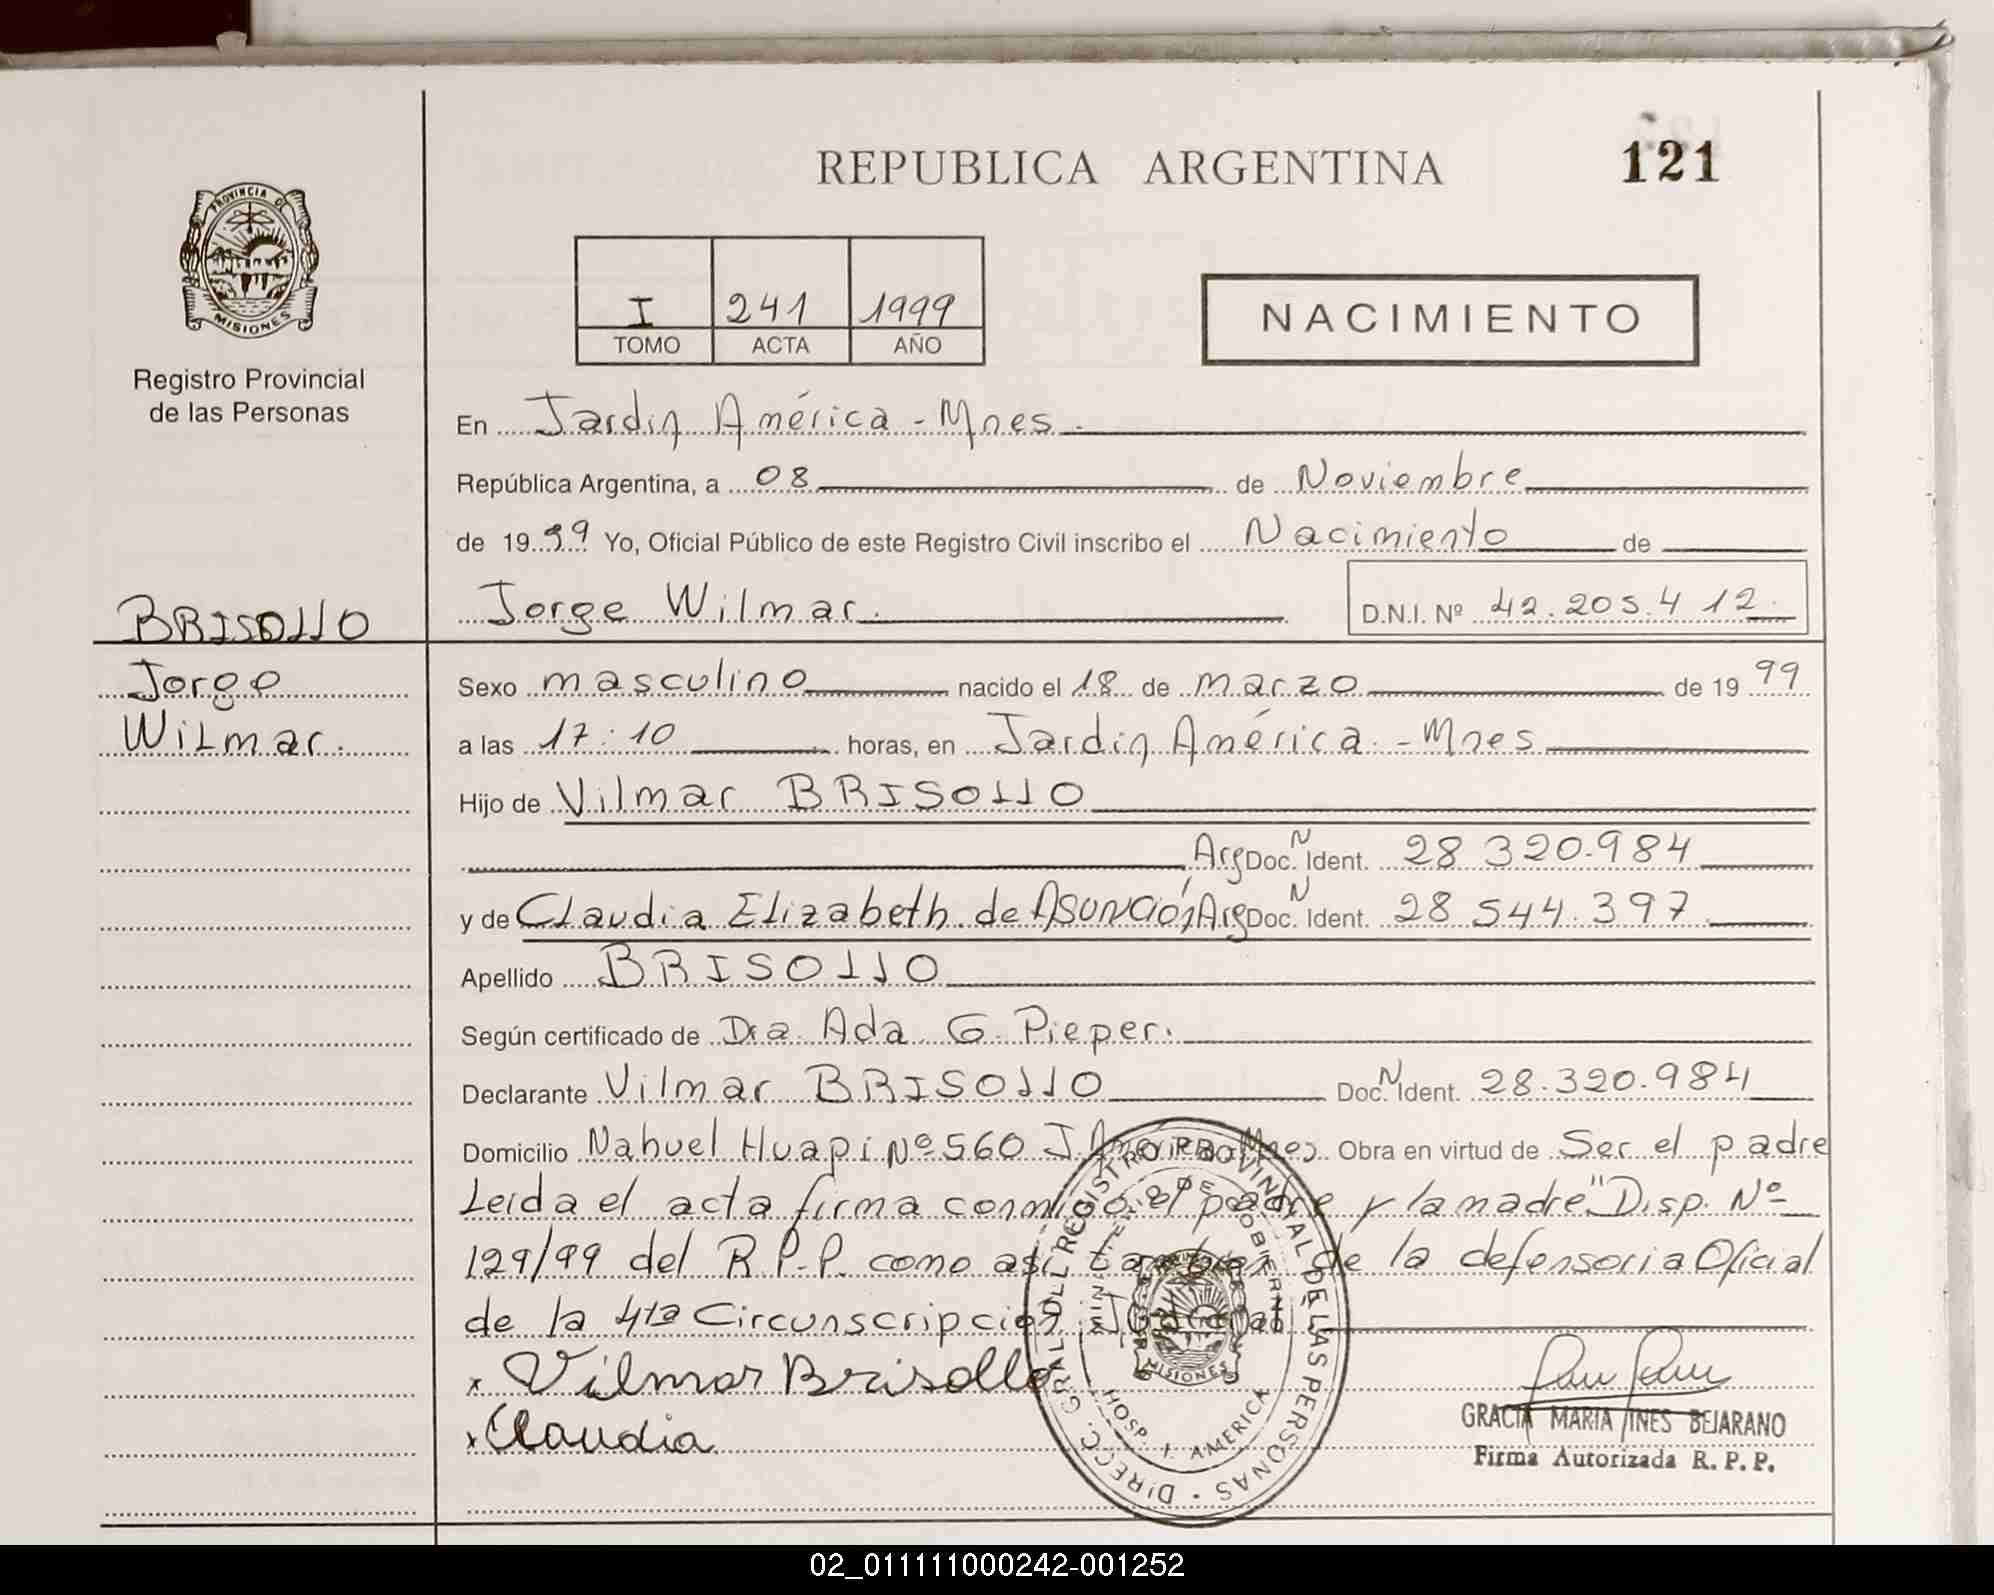 REPUBLICA ARGENTINA
121
PROVINCIA DE
MISIONES
Registro Provincial
de las Personas
I 241 1999
TOMO ACTA AÑO
NACIMIENTO
En Jardin América - Mnes.
República Argentina, a 08 de Noviembre
de 1999 Yo, Oficial Público de este Registro Civil inscribo el Nacimiento de
BRISOLLO
Jorge Wilmar. D.N.I. Nº 42.205.412.
Jorge
Sexo masculino nacido el 18 de marzo de 1999
Wilmar.
a las 17:10 horas, en Jardin América - Mnes
Hijo de Vilmar BRISOLLO
Arg Doc. N Ident. 28 320.984
y de Claudia Elizabeth de Asunción Arg Doc. N Ident. 28 544.397
Apellido BRISOLLO
Según certificado de Dra. Ada G. Pieper.
Declarante Vilmar BRISOLLO Doc. N Ident. 28.320.984
Domicilio Nahuel Huapi Nº 560 J. América Mnes Obra en virtud de Ser el padre
Leida el acta firma conmigo el padre y la madre." Disp. Nº
129/99 del R.P.P. como asi tambien de la defensoria Oficial
de la 4ta Circunscripcion Judicial
x Vilmar Brisollo
x Claudia
DIRECC. GRAL. DEL REGISTRO PROVINCIAL DE LAS PERSONAS
MINISTERIO DE GOBIERNO
MISIONES
HOSP. J. AMERICA
GRACIA MARIA INES BEJARANO
Firma Autorizada R. P. P.
02_011111000242-001252